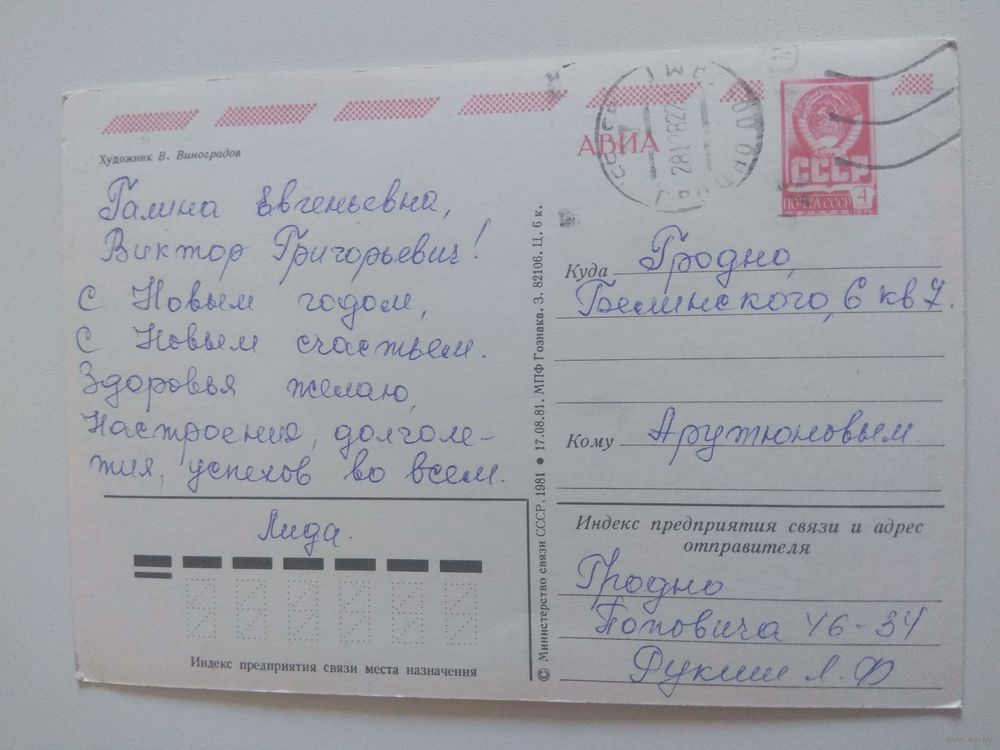 Художник В. Виноградов
АВИА
СССР
ПОЧТА СССР 4
Галина Евгеньевна,
Виктор Григорьевич!
С Новым годом,
С Новым счастьем.
Здоровья желаю,
Настроения, долголе-
тия, успехов во всем.
Лида.
Индекс предприятия связи места назначения
© Министерство связи СССР, 1981 • 17.08.81. МПФ Гознака. З. 82106. Ц. 6 к.
Куда Гродно,
Белинского, 6 кв 7.
Кому Арутюновым
Индекс предприятия связи и адрес
отправителя
Гродно
Поповича 46-34
Л. Ф